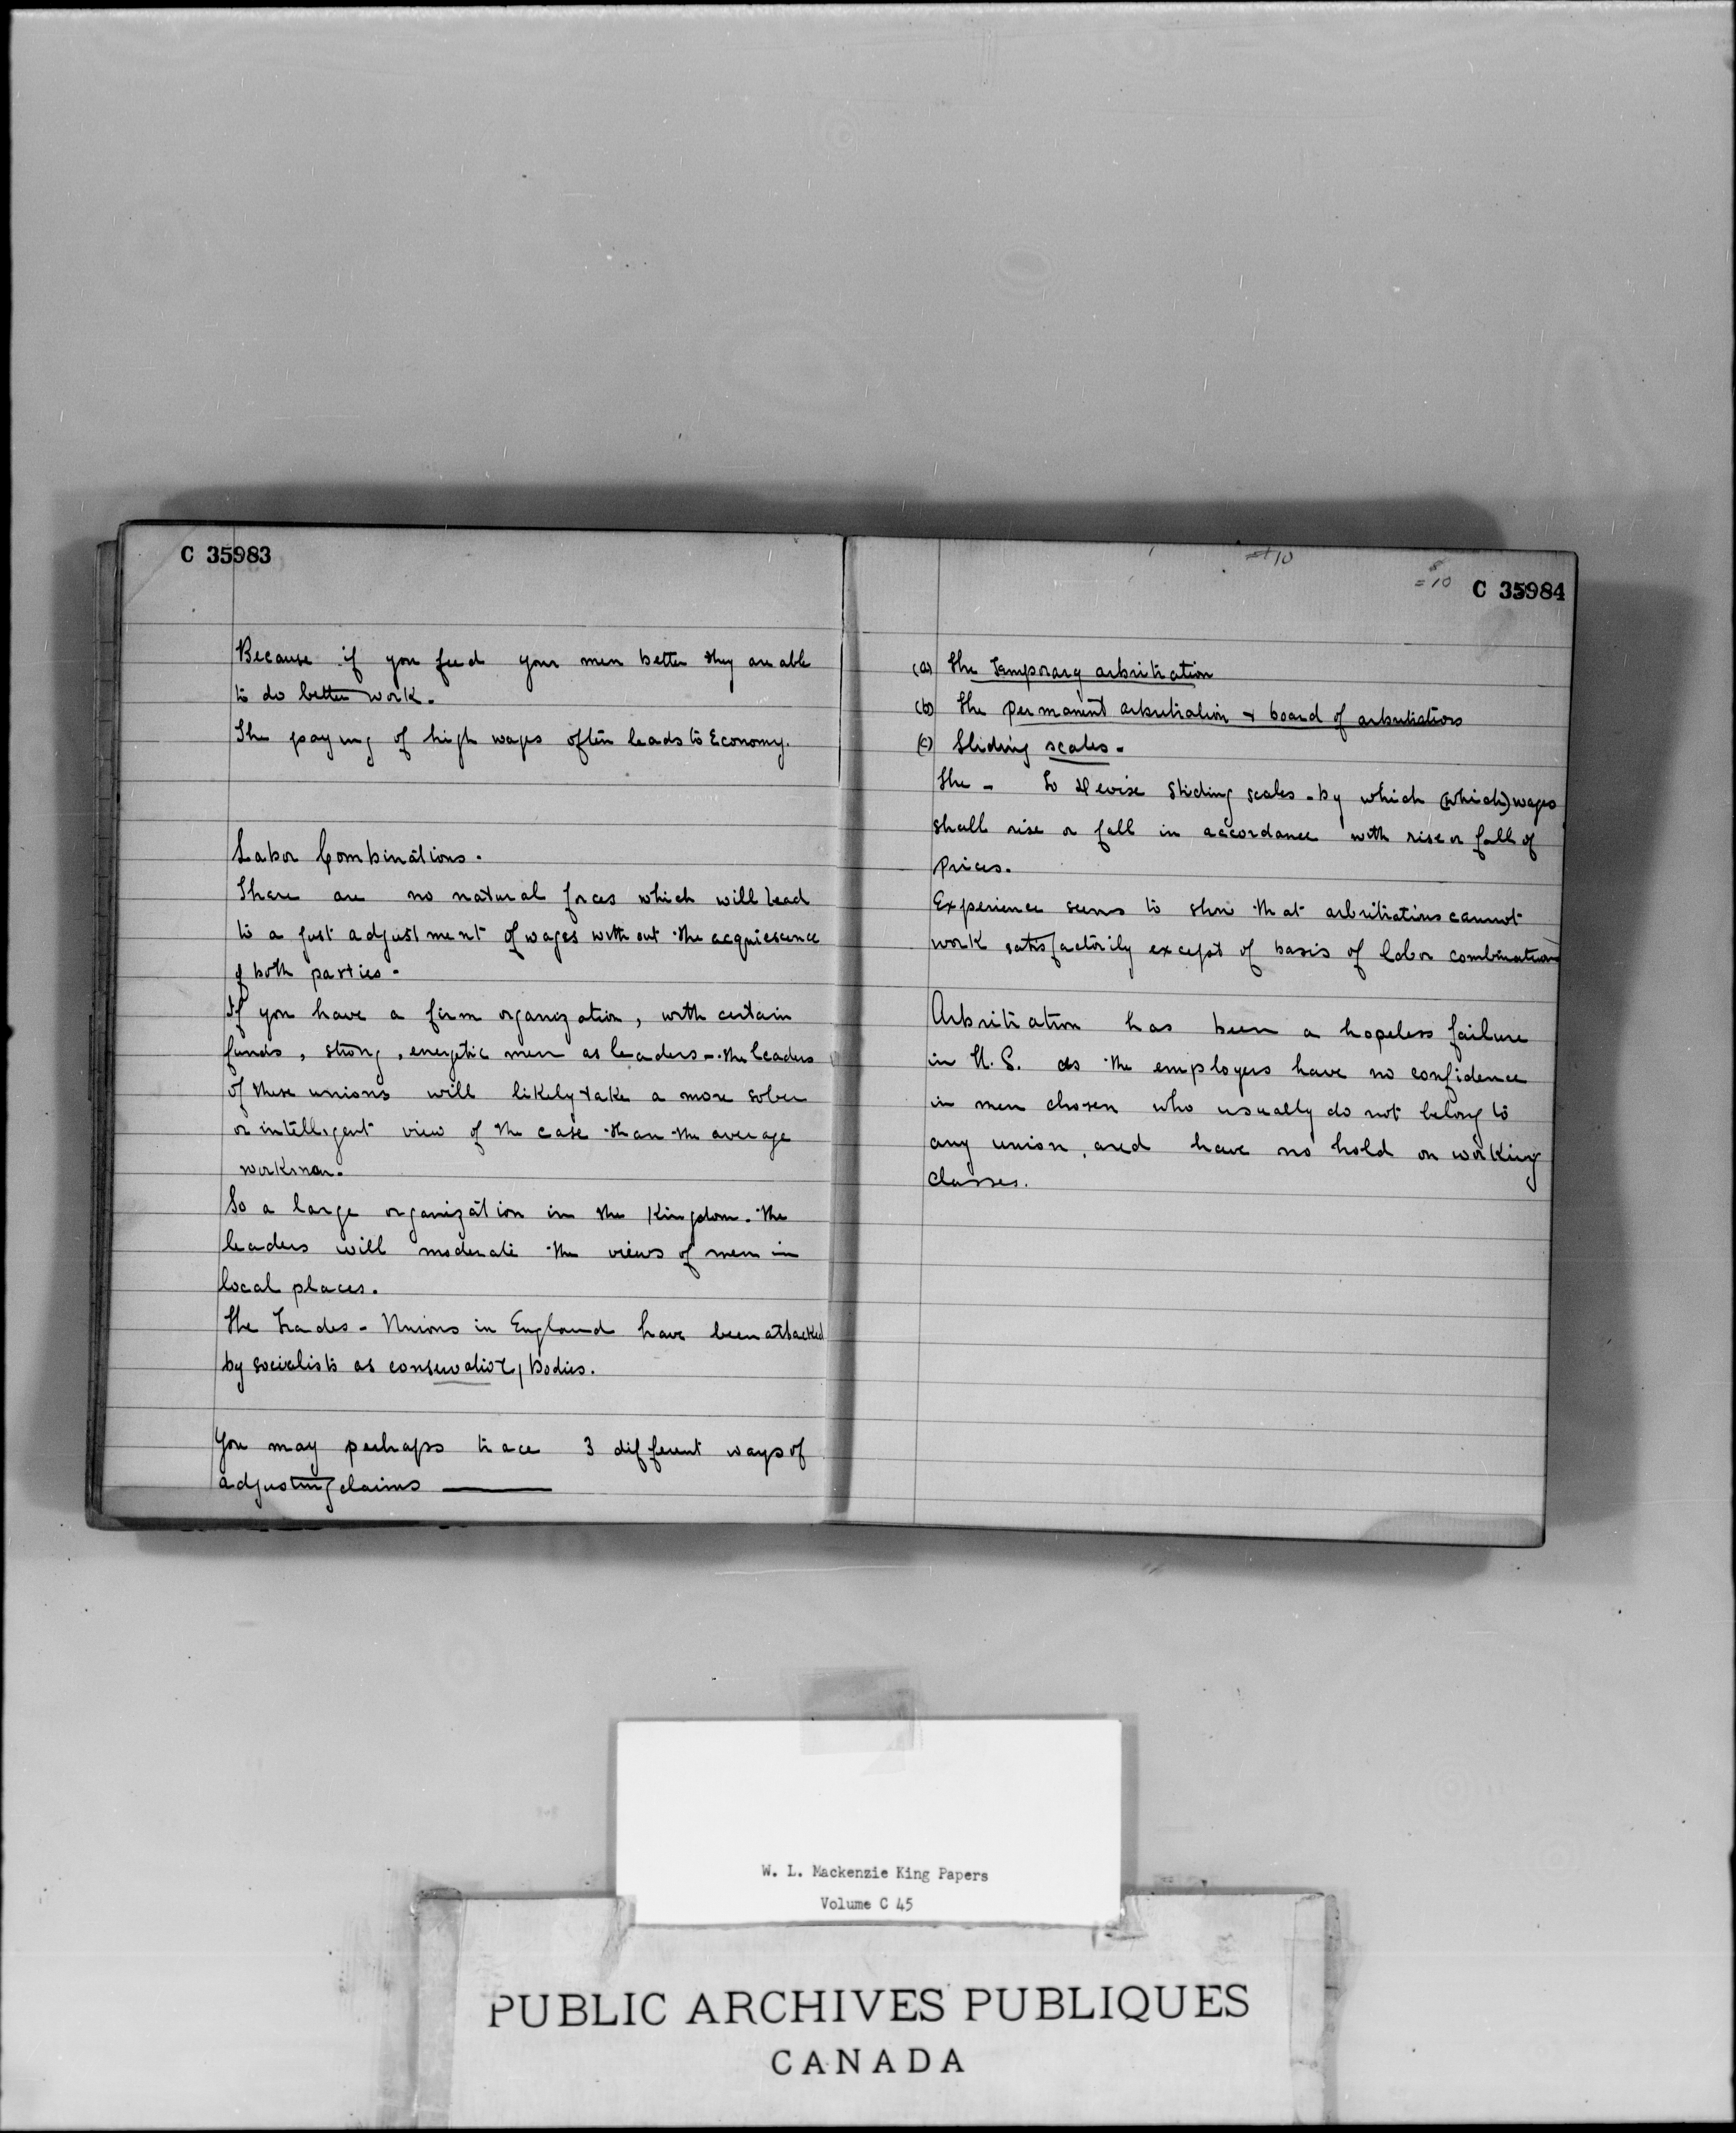 C 35983
Because if you feed your men better they are able
to do better work.
The paying of high wages often leads to Economy.
Labor Combinations.
There are no natural forces which will lead
to a just adjustment of wages without the acquiescence
of both parties -
If you have a firm organization, with certain
funds, strong, energetic men as leaders - the leaders
of these unions will likely take a more sober
or intelligent view of the case than the average
workman.
So a large organization in the Kingdom. The
leaders will moderate the views of men in
local places.
The Trades - Unions in England have been attacked
by socialists as conservative bodies.
You may perhaps trace 3 different ways of
adjusting claims ———
10
= 10
C 35984
(a) The Temporary arbitration
(b) The permanent arbitration & board of arbitrations
(c) Sliding scales -
The - To devise sliding scales - by which (which) wages
shall rise or fall in accordance with rise or fall of
prices.
Experience seems to show that arbitrations cannot
work satisfactorily except of basis of labor combinations
Arbitration has been a hopeless failure
in U.S. as the employers have no confidence
in men chosen who usually do not belong to
any union, and have no hold on working
classes.
W. L. Mackenzie King Papers
Volume C 45
PUBLIC ARCHIVES PUBLIQUES
CANADA